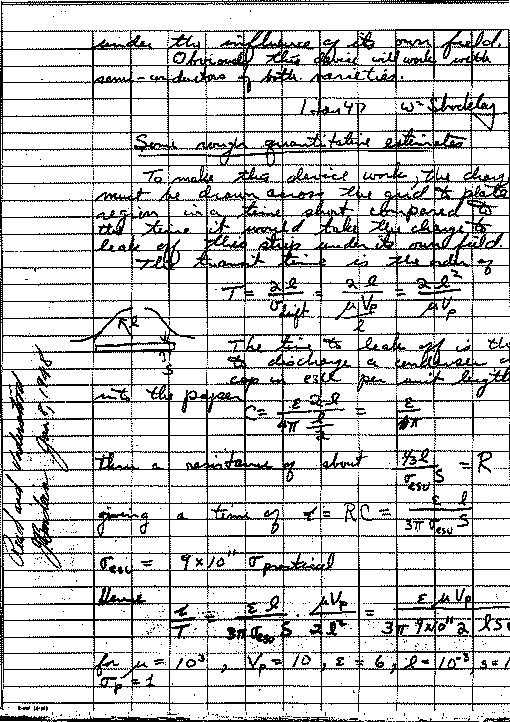 under the influence of its own field.
Obviously this device will work with
semi-conductors of both varieties.
W Shockley
Some rough quantitative estimates
To make this device work, the charge
must be drawn across the grid to plate
region in a time short compared to
the time it would take the charge to
leak off this strip under its own field.
The transit time is the order of
T = 2l / v drift = 2l / (μVp / l) = 2l² / μVp
l
S
The time to leak off is the
to discharge a condenser
cap in esu per unit length
into the paper
C = ε/4π 2l / (l/2) = ε/π
thru a resistance of about ⅓l / σesu S = R
giving a time of τ = RC = ε l / 3π σesu S
σesu = 9×10¹¹ σ practical
Hence
τ/T = ε l / 3π σesu S · μVp / 2l² = ε μ Vp / 3π 9×10¹¹ 2 l S
for μ = 10³, Vp = 10, ε = 6, l = 10⁻³, s = 1
σp = 1
Read and understood
J Bardeen Jan 5, 1948